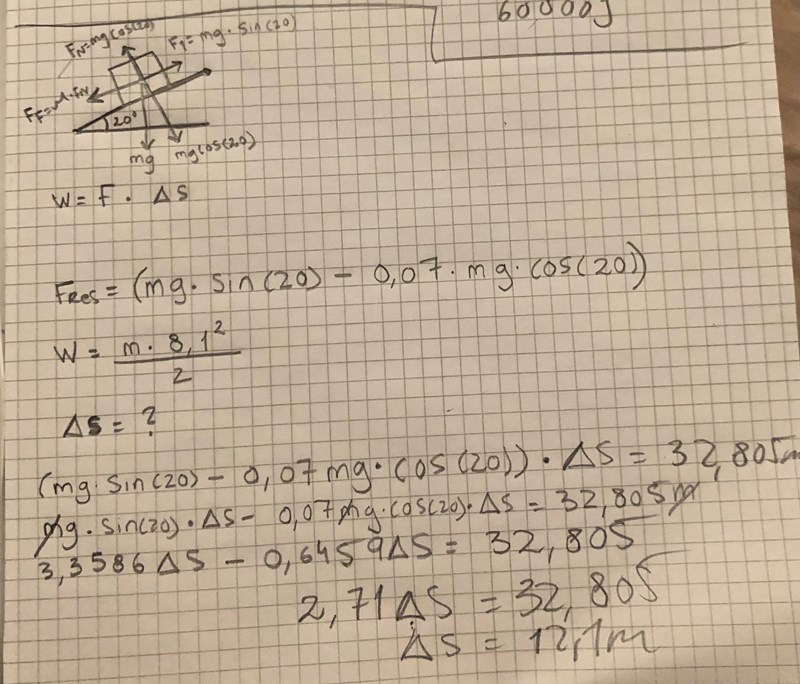 60000J
FN=mg cos(20)
F1=mg·sin(20)
FF=μ·FN
20°
mg
mg cos(20)
W = F · Δs
FRes = (mg· sin(20) - 0,07· mg· cos(20))
W = m· 8,1²
2
Δs = ?
(mg· sin(20) - 0,07 mg· cos(20)) · Δs = 32,805m
mg· sin(20)· Δs - 0,07 mg· cos(20)· Δs = 32,805m
3,3586 Δs - 0,6459Δs = 32,805
2,71Δs = 32,805
Δs = 12,1m